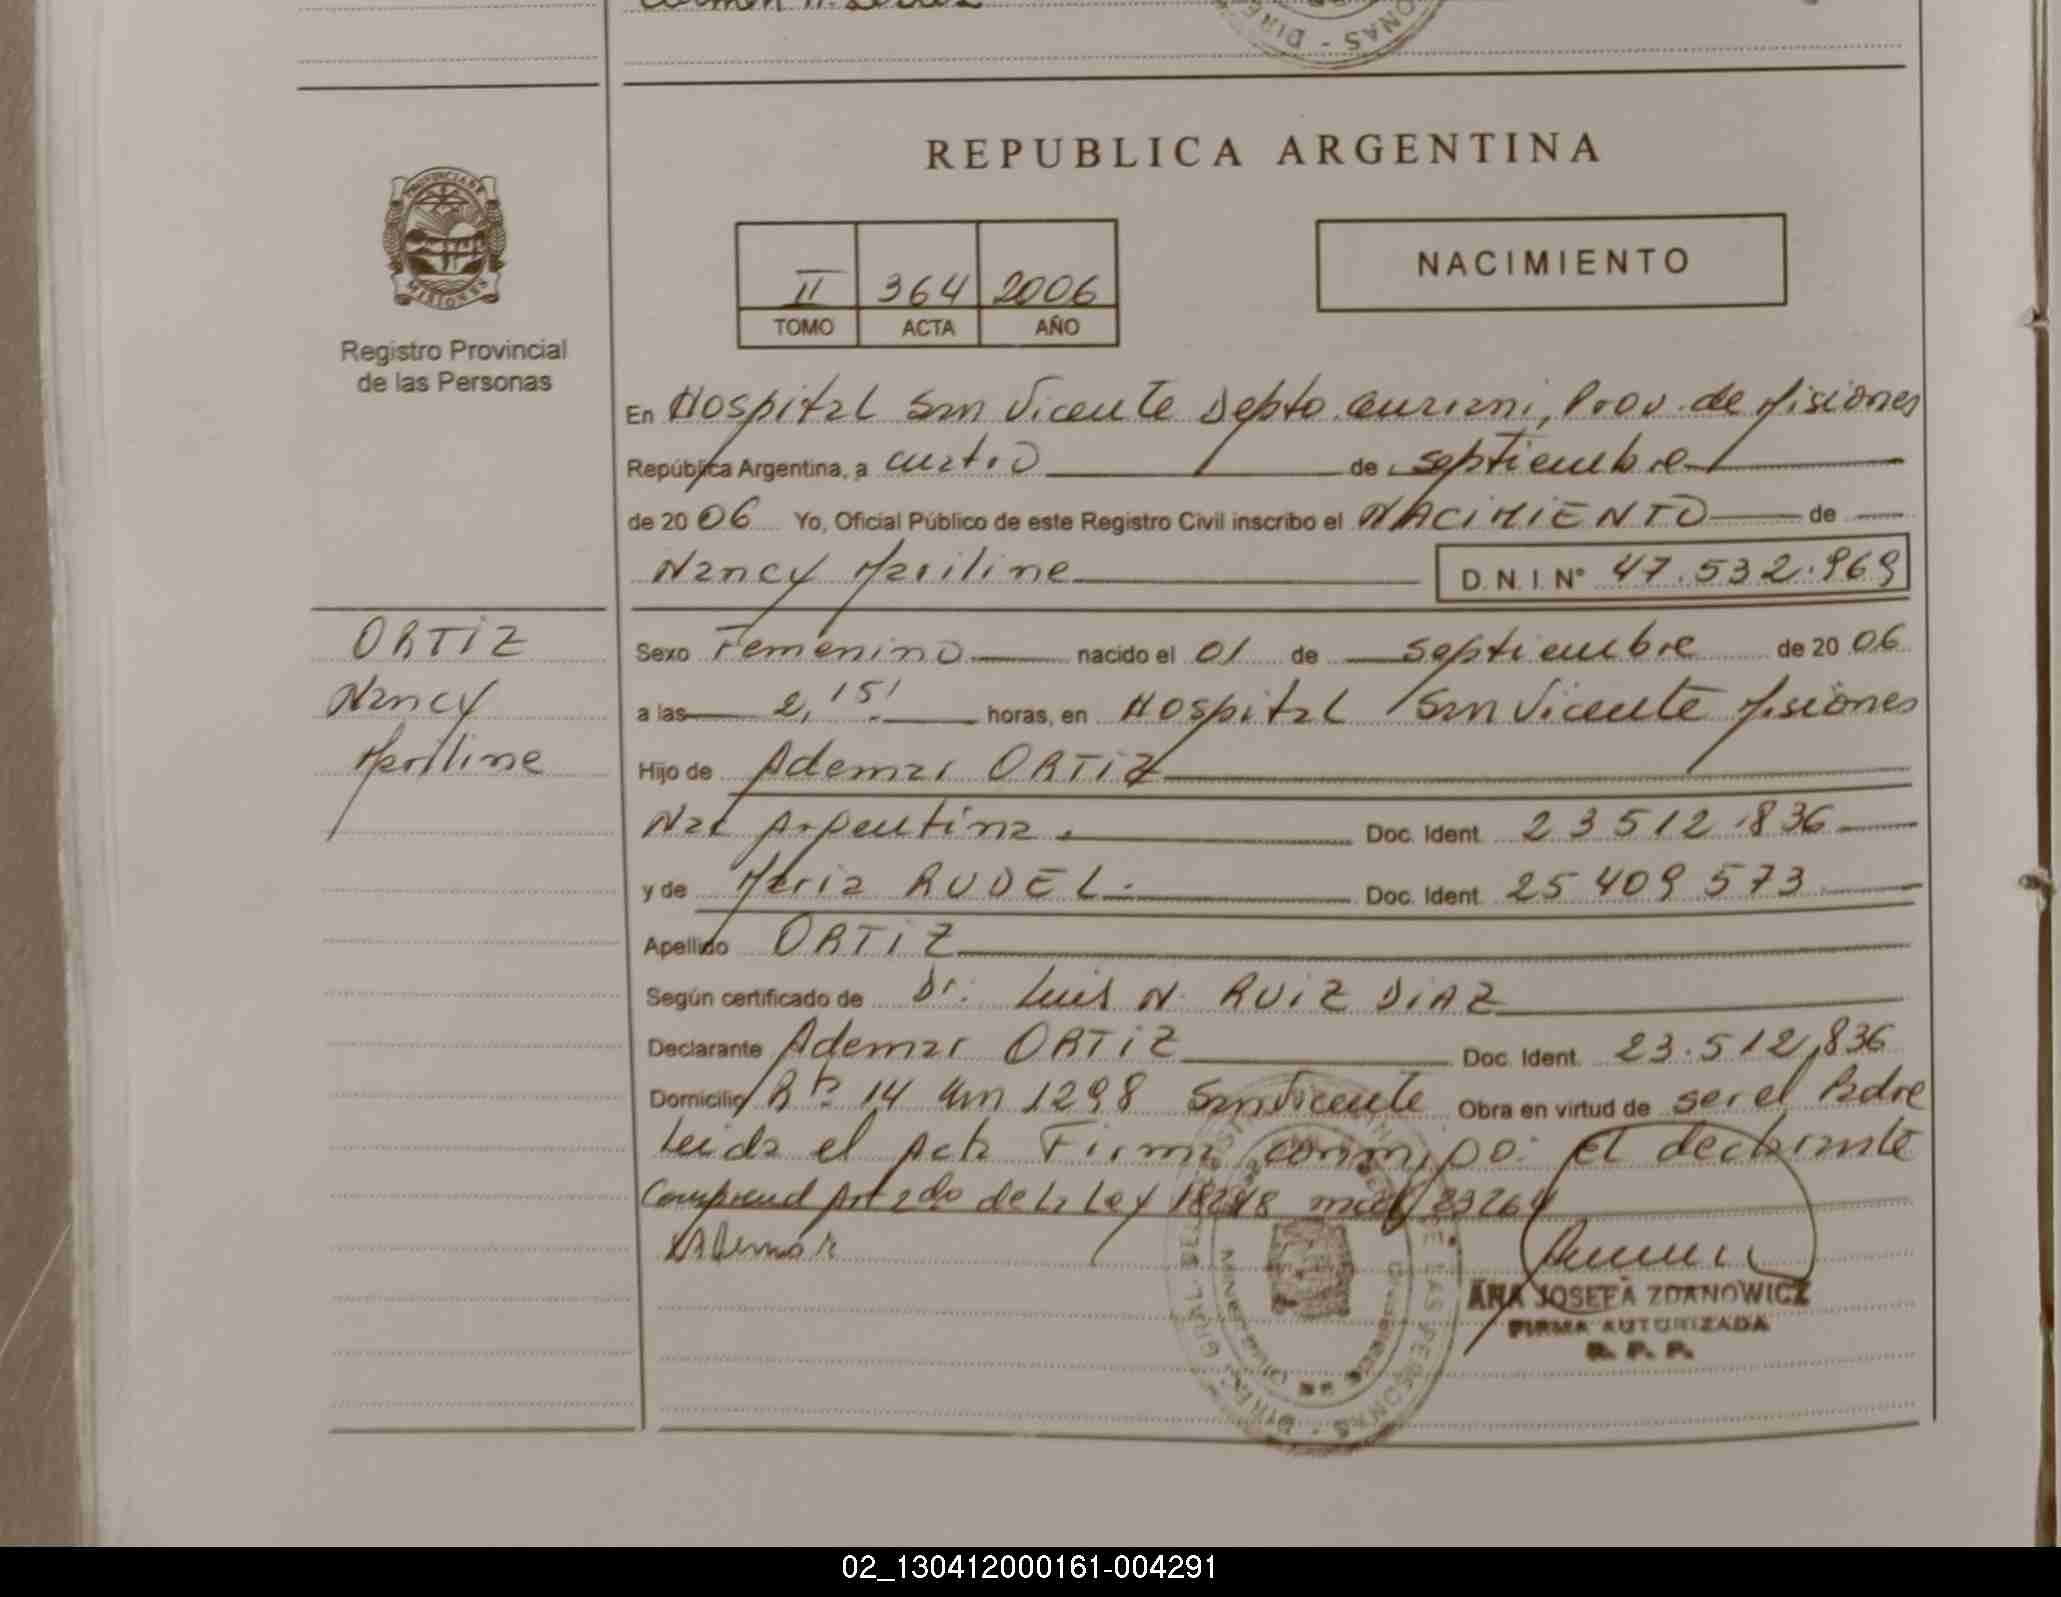 REPUBLICA ARGENTINA
PROVINCIA DE
MISIONES
Registro Provincial
de las Personas
II 364 2006
TOMO ACTA AÑO
NACIMIENTO
En Hospital San Vicente Depto. Guarani, Prov. de Misiones
República Argentina, a cuatro de septiembre
de 2006 Yo, Oficial Público de este Registro Civil inscribo el NACIMIENTO de
Nancy Mariline D. N. I. N° 47.532.969
ORTIZ
Nancy
Mariline
Sexo Femenino nacido el 01 de septiembre de 2006
a las 2,15' horas, en Hospital San Vicente Misiones
Hijo de Ademar ORTIZ
Nac Argentina. Doc. Ident. 23 512.836
y de Maria RUDEL.- Doc. Ident. 25 409 573
Apellido ORTIZ
Según certificado de Dr. Luis N. RUIZ DIAZ
Declarante Ademar ORTIZ Doc. Ident. 23.512,836
Domicilio Rta 14 Km 1298 San Vicente Obra en virtud de ser el Padre
Leida el Acta Firma conmigo: El declarante
Comprend Art 2do de la Ley 18248 mod 23264
Ademar
ANA JOSEFA ZDANOWICZ
FIRMA AUTORIZADA
R. P. P.
02_130412000161-004291